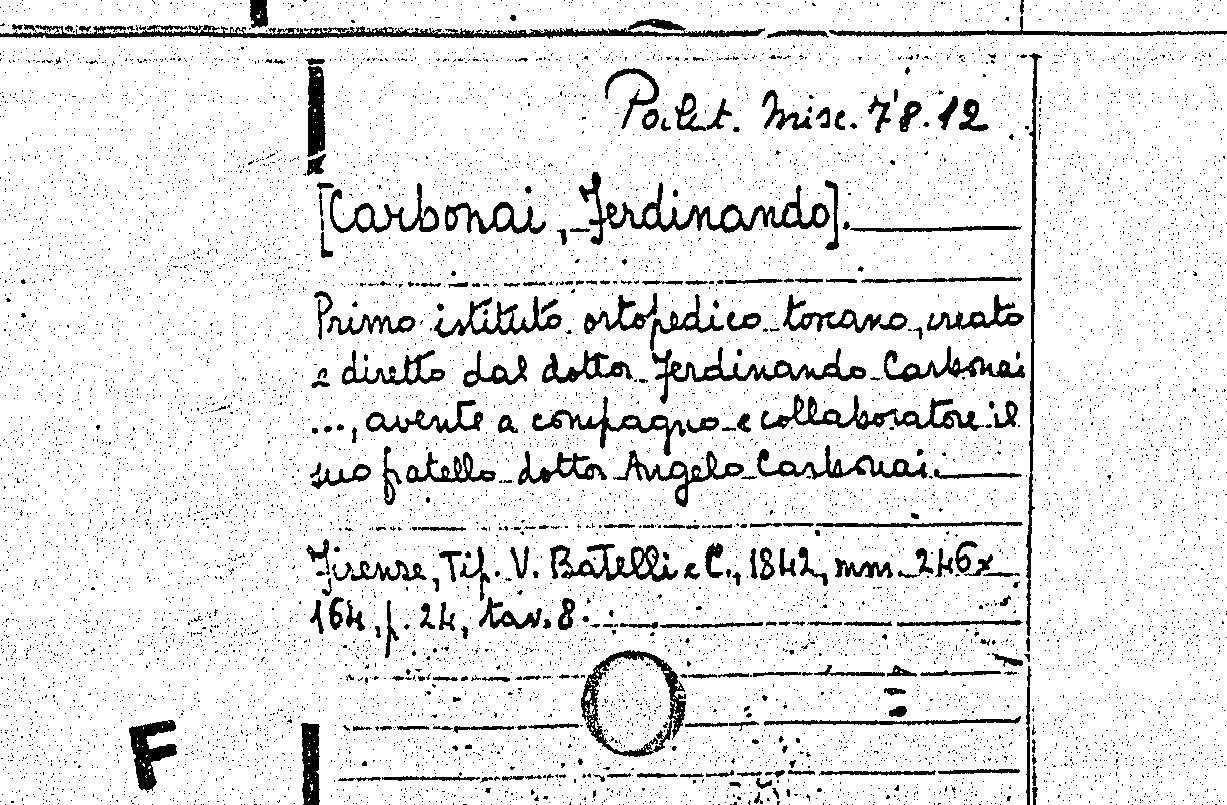 Palat. Misc. 78.12
[Carbonai, Ferdinando].
Primo istituto ortopedico toscano, creato
e diretto dal dottor Ferdinando Carbonai
..., avente a compagno e collaboratore il
suo fratello dottor Angelo Carbonai.
Firenze, Tip. V. Batelli e C., 1842, mm. 246x
164, p. 24, tav. 8.
F